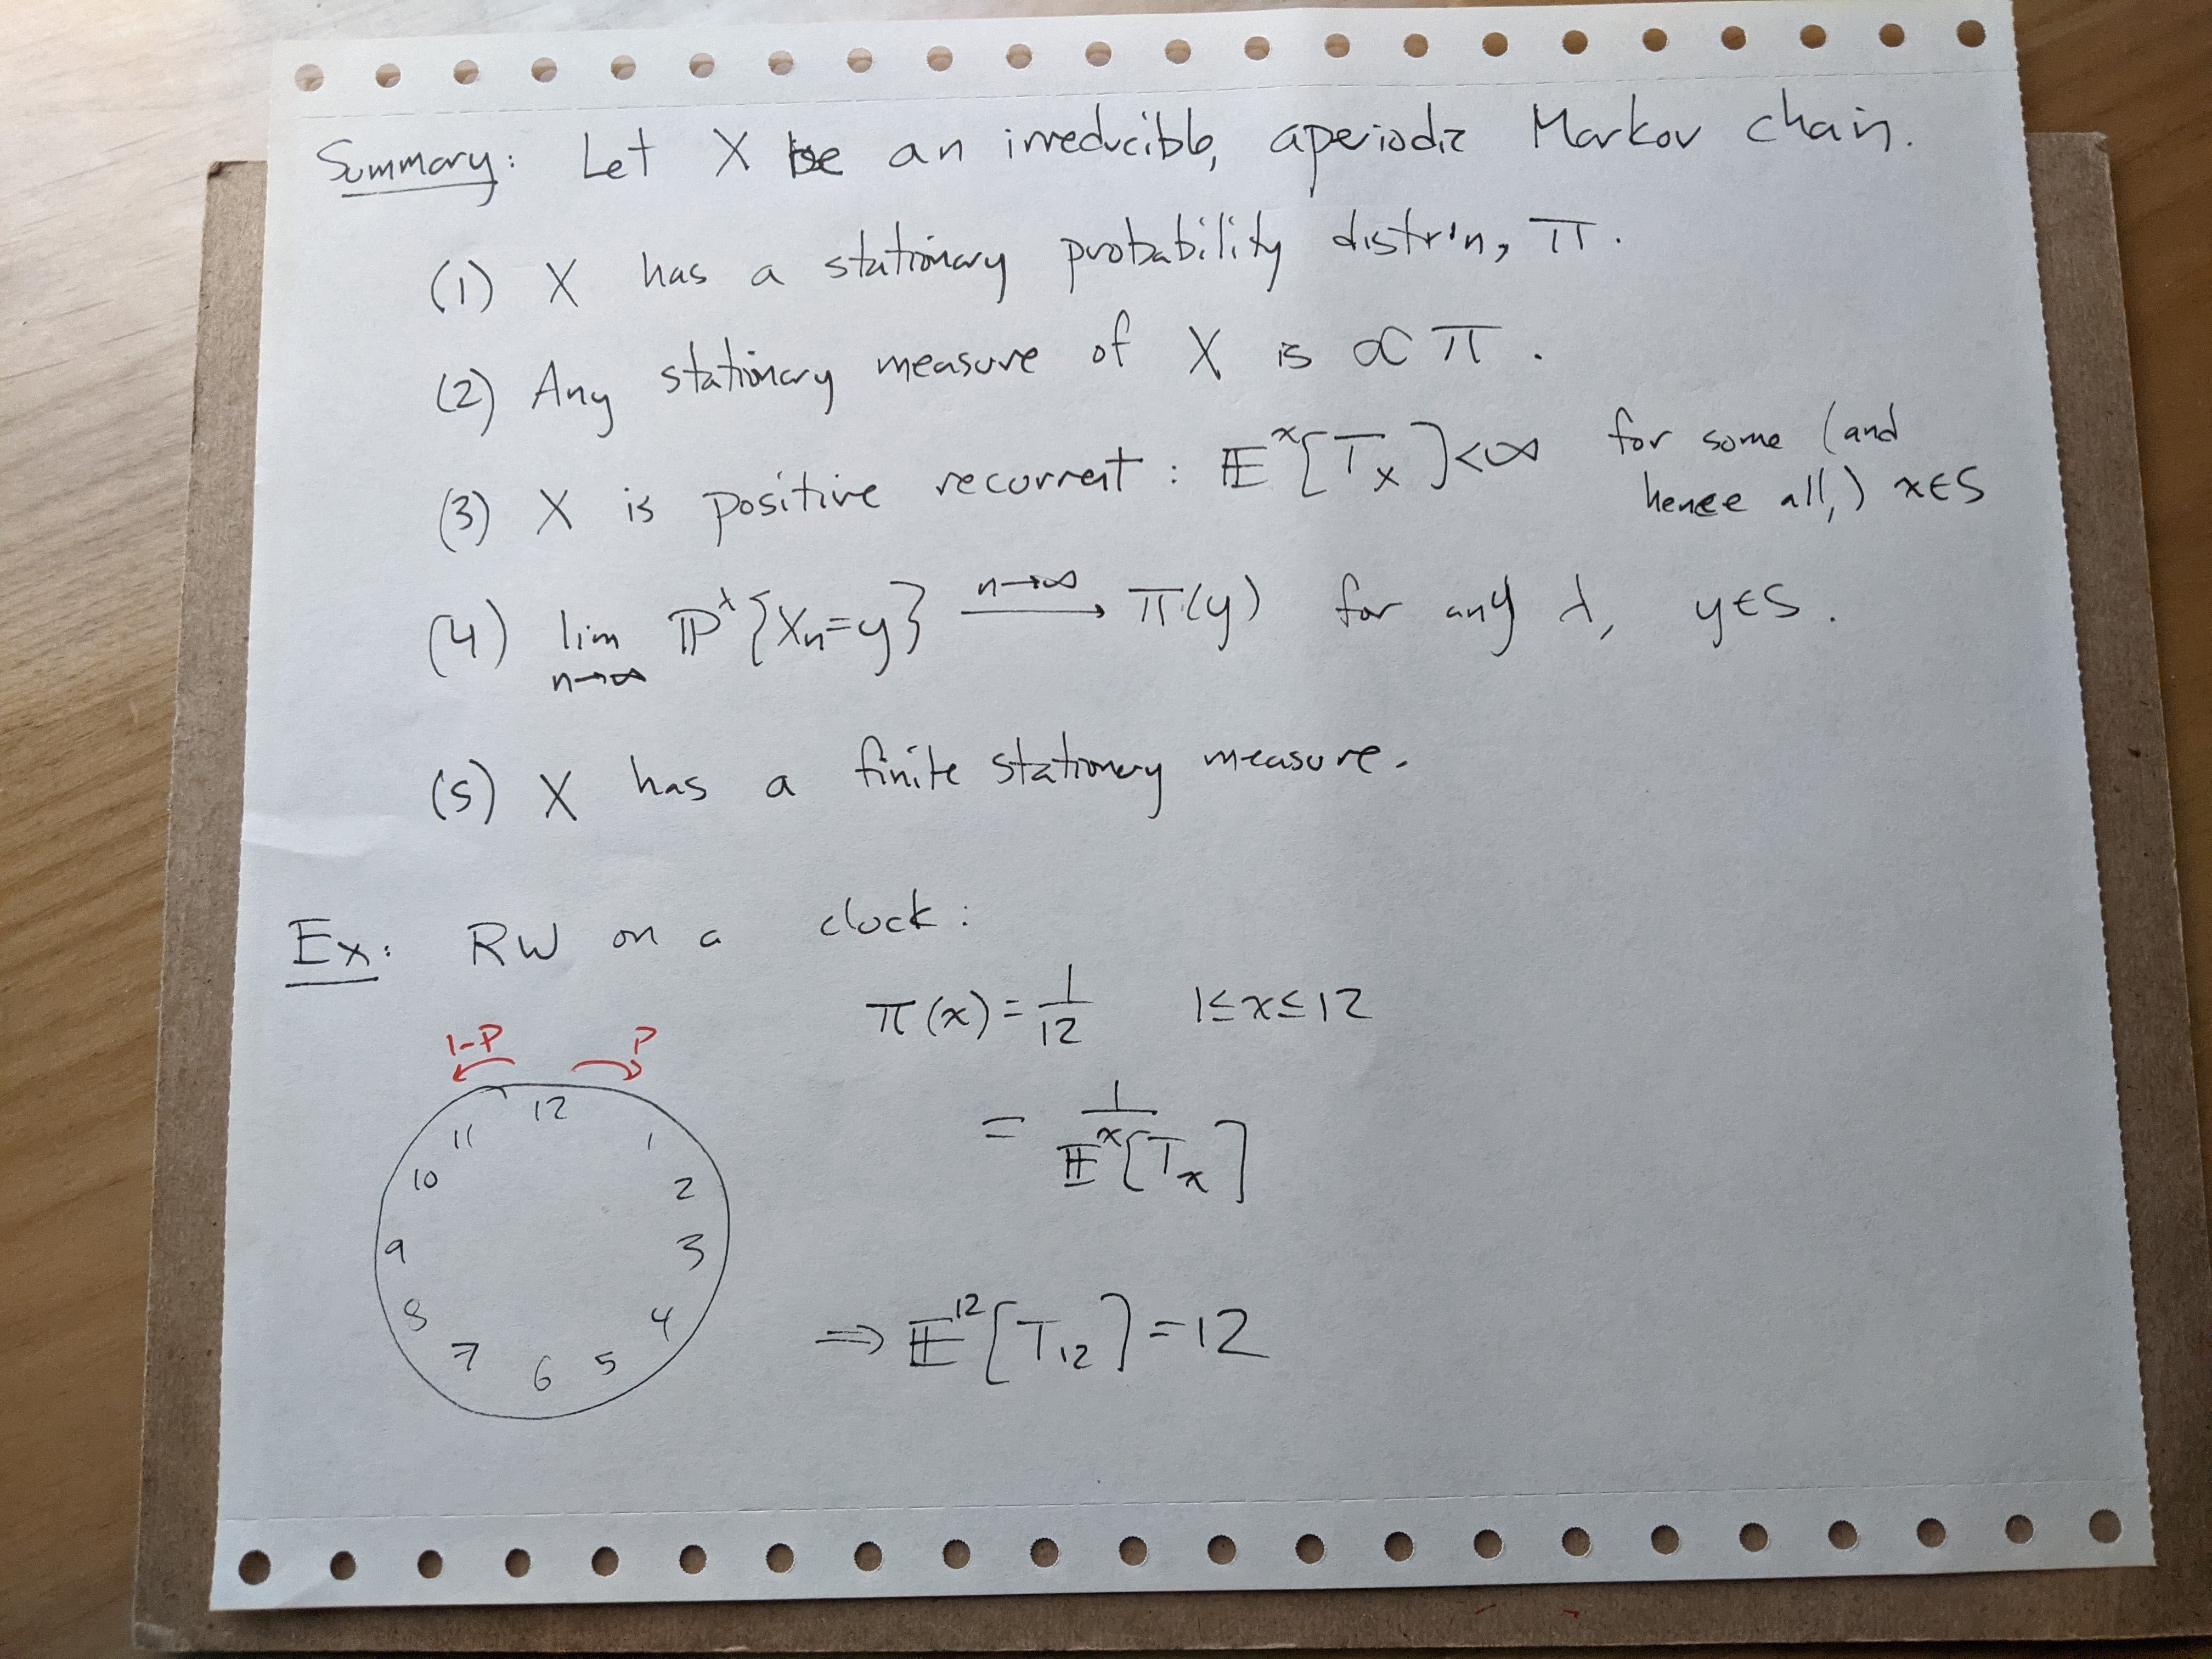 Summary: Let X be an irreducible, aperiodic Markov chain.
(1) X has a stationary probability distr'n, π.
(2) Any stationary measure of X is ∝ π.
(3) X is positive recurrent: 𝔼^x[T_x]<∞ for some (and
hence all,) x∈S
(4) lim_{n→∞} ℙ^λ{X_n=y} →^{n→∞} π(y) for any λ, y∈S.
(5) X has a finite stationary measure.
Ex: RW on a clock:
π(x)=1/12 1≤x≤12
1-P P
= 1/𝔼^x[T_x]
12
11 1
10 2
9 3
8 4
7 6 5
⇒ 𝔼^12[T_12]=12